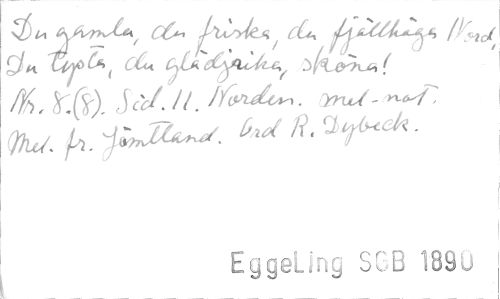 Du gamla, du friska, du fjällhöga Nord,
Du tysta, du glädjrika, sköna!
Nr. 8.(8). Sid. 11. Norden. mel-not.
Mel. fr. Jämtland. Ord R. Dybeck.
EggeLing SGB 1890